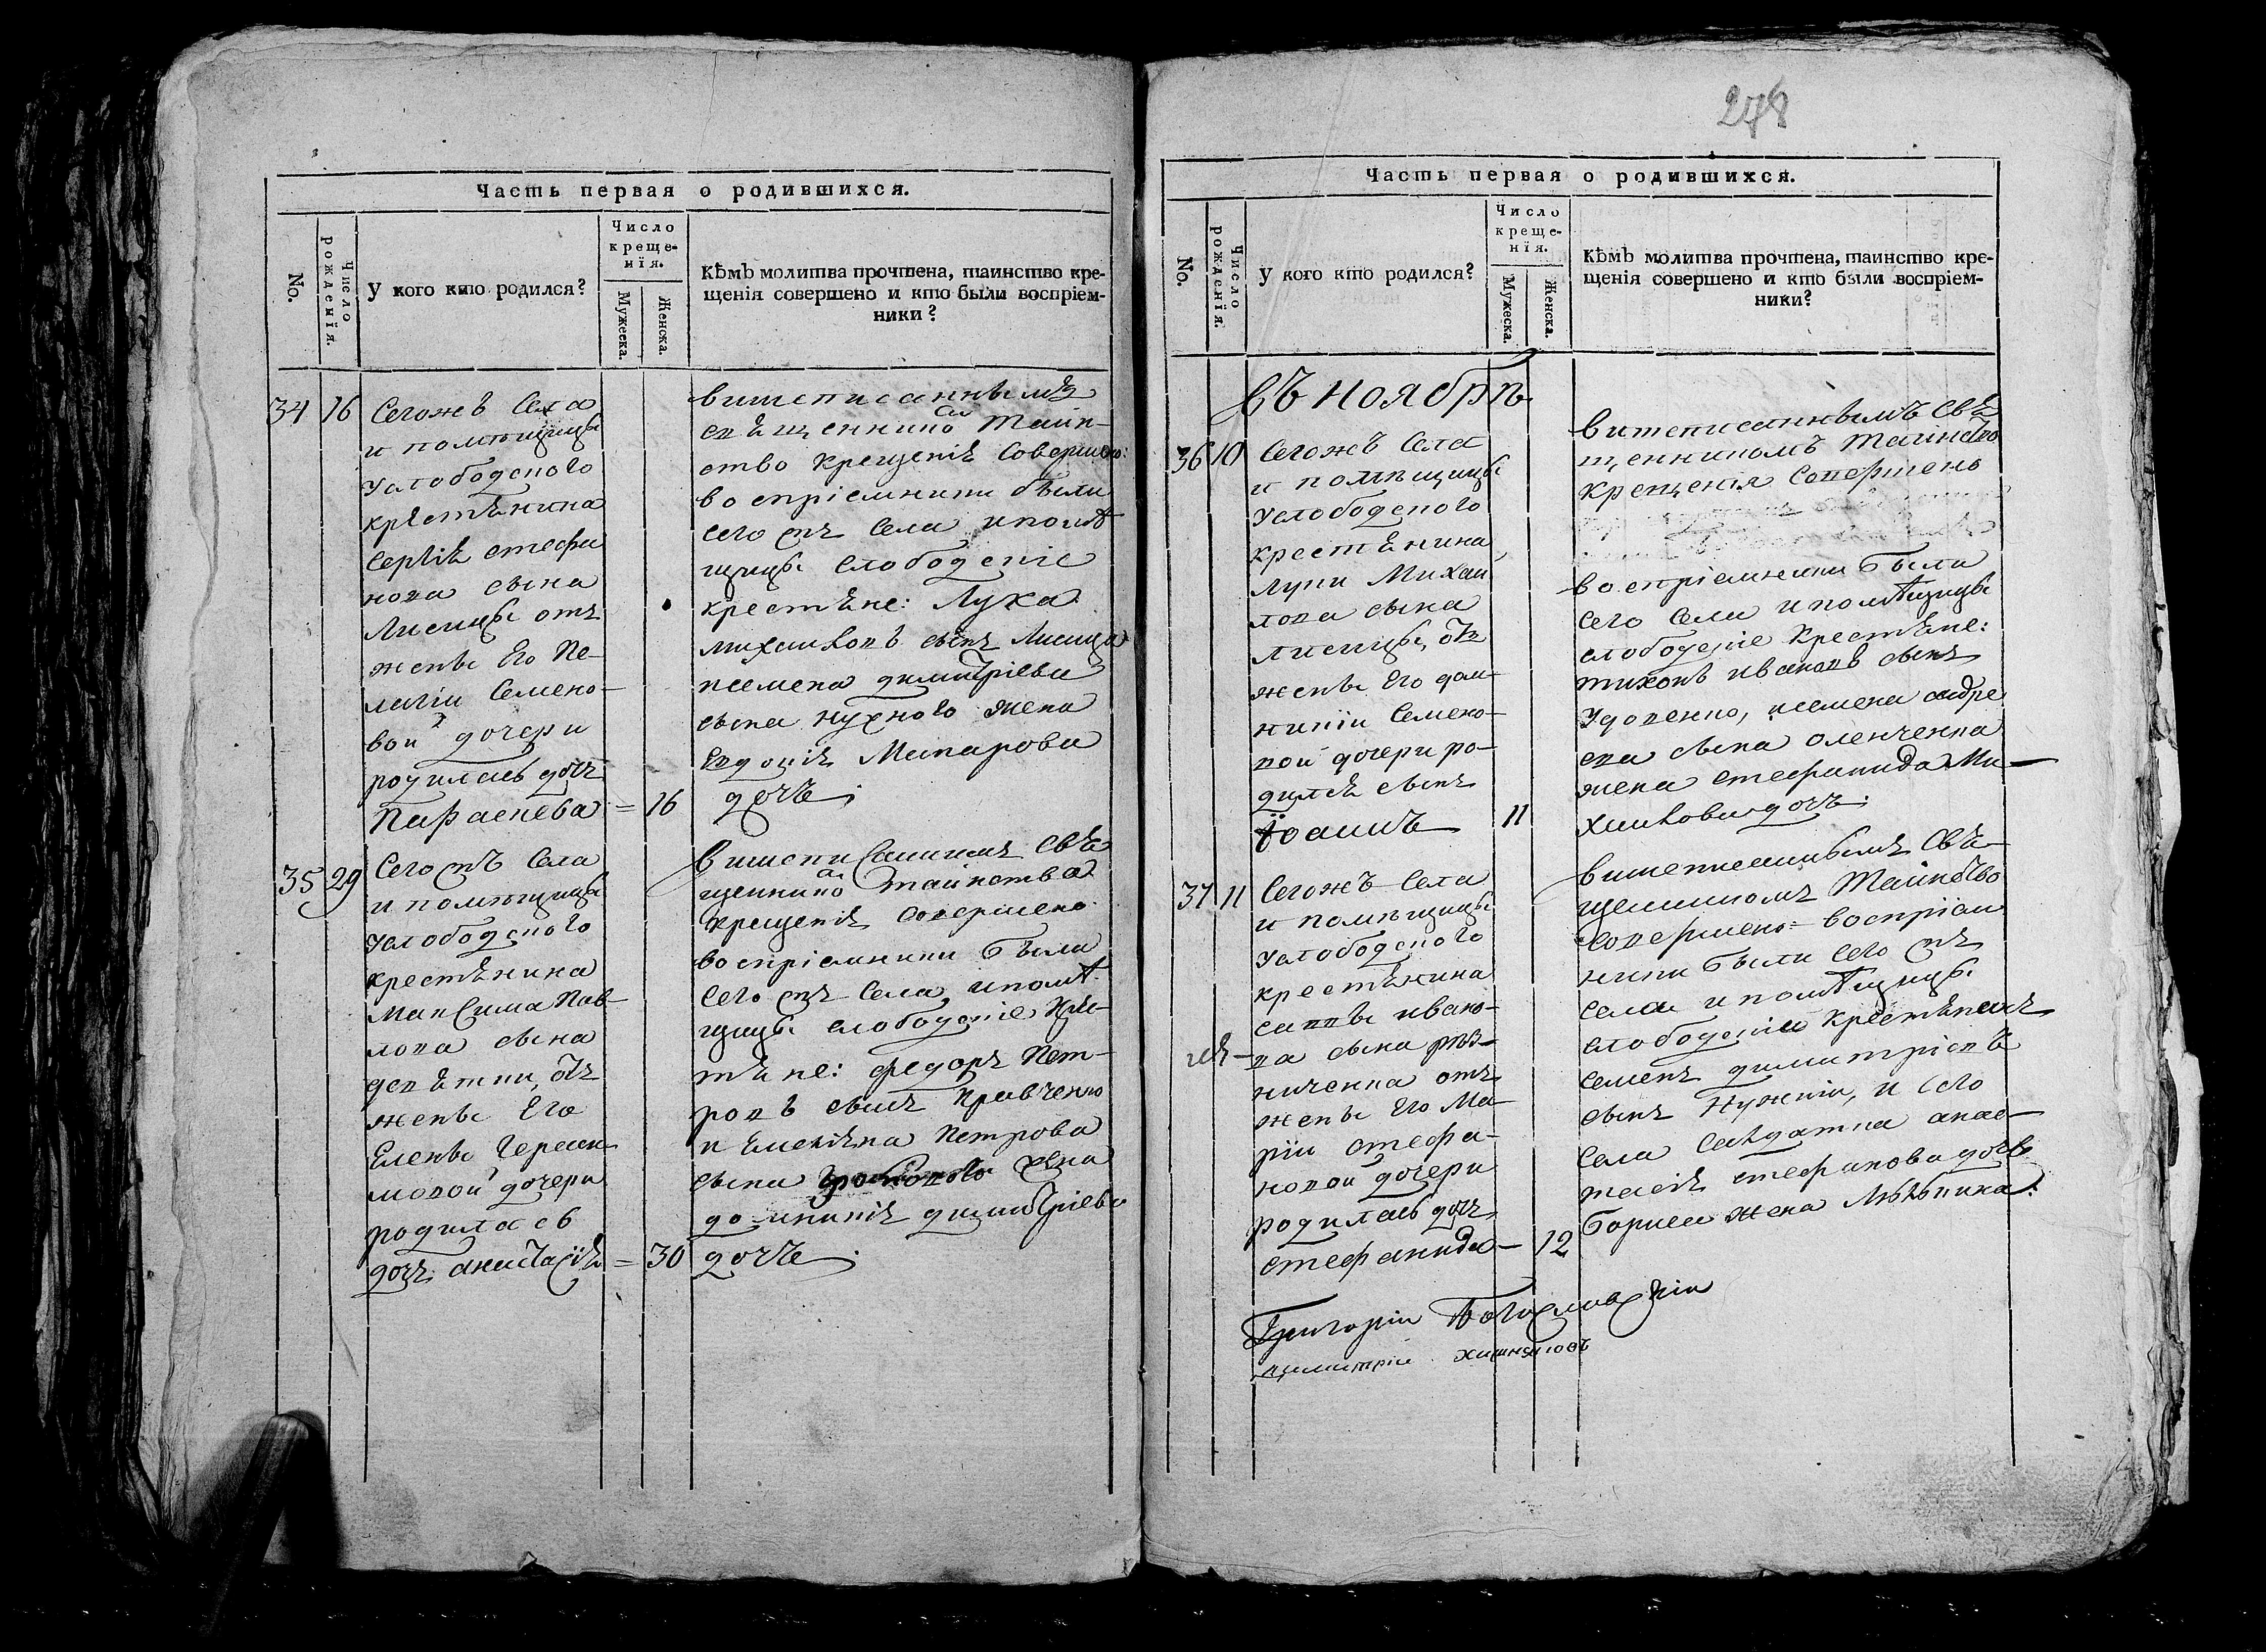 278
Часть первая о родившихся.
No.
Число рожденія.
У кого кто родился?
Число крещенія.
Мужеска.
Женска.
Кѣмъ молитва прочтена, таинство кре-
щенія совершено и кто были воспріем-
ники?
34 16
Сегожъ Села
и помѣщицы
Услободского
крестѣнина
Сергіѣ стефа
нова сына
Лисицы отъ
жены Его Пе-
лагіи Семено-
вои дочери
родилась дочъ
Параскева = 16
вишеписаннымъ
свѣщенникомъ Таин-
ство крещеніѣ Совершено:
воспріемники были
сего жъ Села и помѣ-
щицы слободскіе
крестѣне: Лука
михаиловъ сынъ Лисица
и семена димитріева
сына нужного жена
Евдокіѣ Макарова
дочъ.
35 29
Сего жъ Села
и помѣщицы
Услободского
крестѣнина
Максима Пав-
лова сына
девѣтки, отъ
жены Его
Елены Гераси-
мовои дочери
родилась
дочъ анастасіѣ = 30
вишеписаннимъ Свѣ
щенникомъ таинства
крещеніѣ Совершено
воспріемники были
Сего жъ Села, и помѣ-
щицы слободскіе, Крес-
тѣне: федоръ Пет-
ровъ сынъ Кравченко
и Емелѣна Петрова
сына жена
домникіѣ димитріева
дочъ.
Часть первая о родившихся.
No.
Число рожденія.
У кого кто родился?
Число крещенія.
Мужеска.
Женска.
Кѣмъ молитва прочтена, таинство кре-
щенія совершено и кто были воспріем-
ники?
въ ноябрѣ
36 10
Сегожъ Села
и помѣщицы
Услободского
крестѣнина
Луки Михаи
лова сына
лисицы, отъ
жены Его дом-
никіи Семено-
вои дочери ро-
дилсѣ сынъ
Іоаннъ 11
вишеписаннымъ Свѣ
щенникомъ Таинство
крещенія Совершено
воспріемники были
сего Села и помѣщицы
слободскіе Крестѣне:
тихонъ ивановъ сынъ
Удовенко, и семена андре
ева сына оленченка
жена стефанида Ми-
хаилова дочъ.
37 11
Сегожъ Села
и помѣщицы
Услободского
крестѣнина
саввы ивано-
ва сына рѣз-
ниченка отъ
жены Его Ма-
ріи стефа-
новои дочери
родилась дочъ
стефанида — 12
вишеписаннымъ Свѣ-
щенникомъ Таинство
совершено: воспріем
ники были Сего жъ
села и помѣщицы
слободскіи крестѣнинъ
семенъ димитріевъ
сынъ Нужніи, и Сего
Села Салдатка анас-
тасіѣ стефанова дочъ
бориса жена Лѣбѣпика.
Григоріи
димитріи